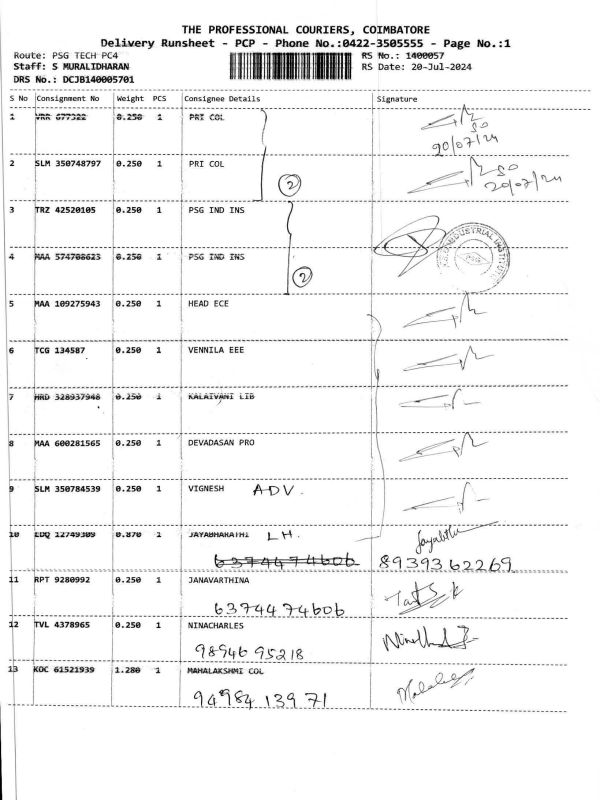 THE PROFESSIONAL COURIERS, COIMBATORE
Delivery Runsheet - PCP - Phone No.:0422-3505555 - Page No.:1
Route: PSG TECH PC4 RS No.: 1400057
Staff: S MURALIDHARAN RS Date: 20-Jul-2024
DRS No.: DCJB140005701
S No Consignment No Weight PCS Consignee Details Signature
1 VRR 677322 0.250 1 PRI COL
20/07/24
2 SLM 350748797 0.250 1 PRI COL
20/07/24
2
3 TRZ 42520105 0.250 1 PSG IND INS
4 MAA 574708623 0.250 1 PSG IND INS
2
INDUSTRIAL INSTITUTE
PSG
5 MAA 109275943 0.250 1 HEAD ECE
6 TCG 134587 0.250 1 VENNILA EEE
7 HRD 328937948 0.250 1 KALAIVANI LIB
8 MAA 600281565 0.250 1 DEVADASAN PRO
9 SLM 350784539 0.250 1 VIGNESH ADV.
10 EDQ 12749309 0.870 1 JAYABHARATHI LH.
6374474606 8939362269
11 RPT 9280992 0.250 1 JANAVARTHINA
6374474606
12 TVL 4378965 0.250 1 NINACHARLES
9894695218
13 KOC 61521939 1.280 1 MAHALAKSHMI COL
9498413971